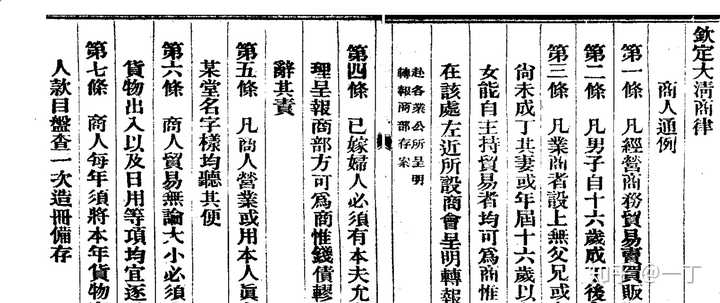 欽定大清商律
商人通例
第一條　凡經營商務貿易賣買販
第二條　凡男子自十六歲成丁後
第三條　凡業商者設上無父兄或
尙未成丁其妻或年屆十六歲以
女能自主持貿易者均可爲商惟
在該處左近所設商會呈明轉報
赴各業公所呈明
轉報商部存案
第四條　已嫁婦人必須有本夫允
理呈報商部方可爲商惟錢債轇
辭其責
第五條　凡商人營業或用本人眞
某堂名字樣均聽其便
第六條　商人貿易無論大小必須
貨物出入以及日用等項均宜逐
第七條　商人每年須將本年貨物
人款目盤查一次造冊備存
知乎 @一丁